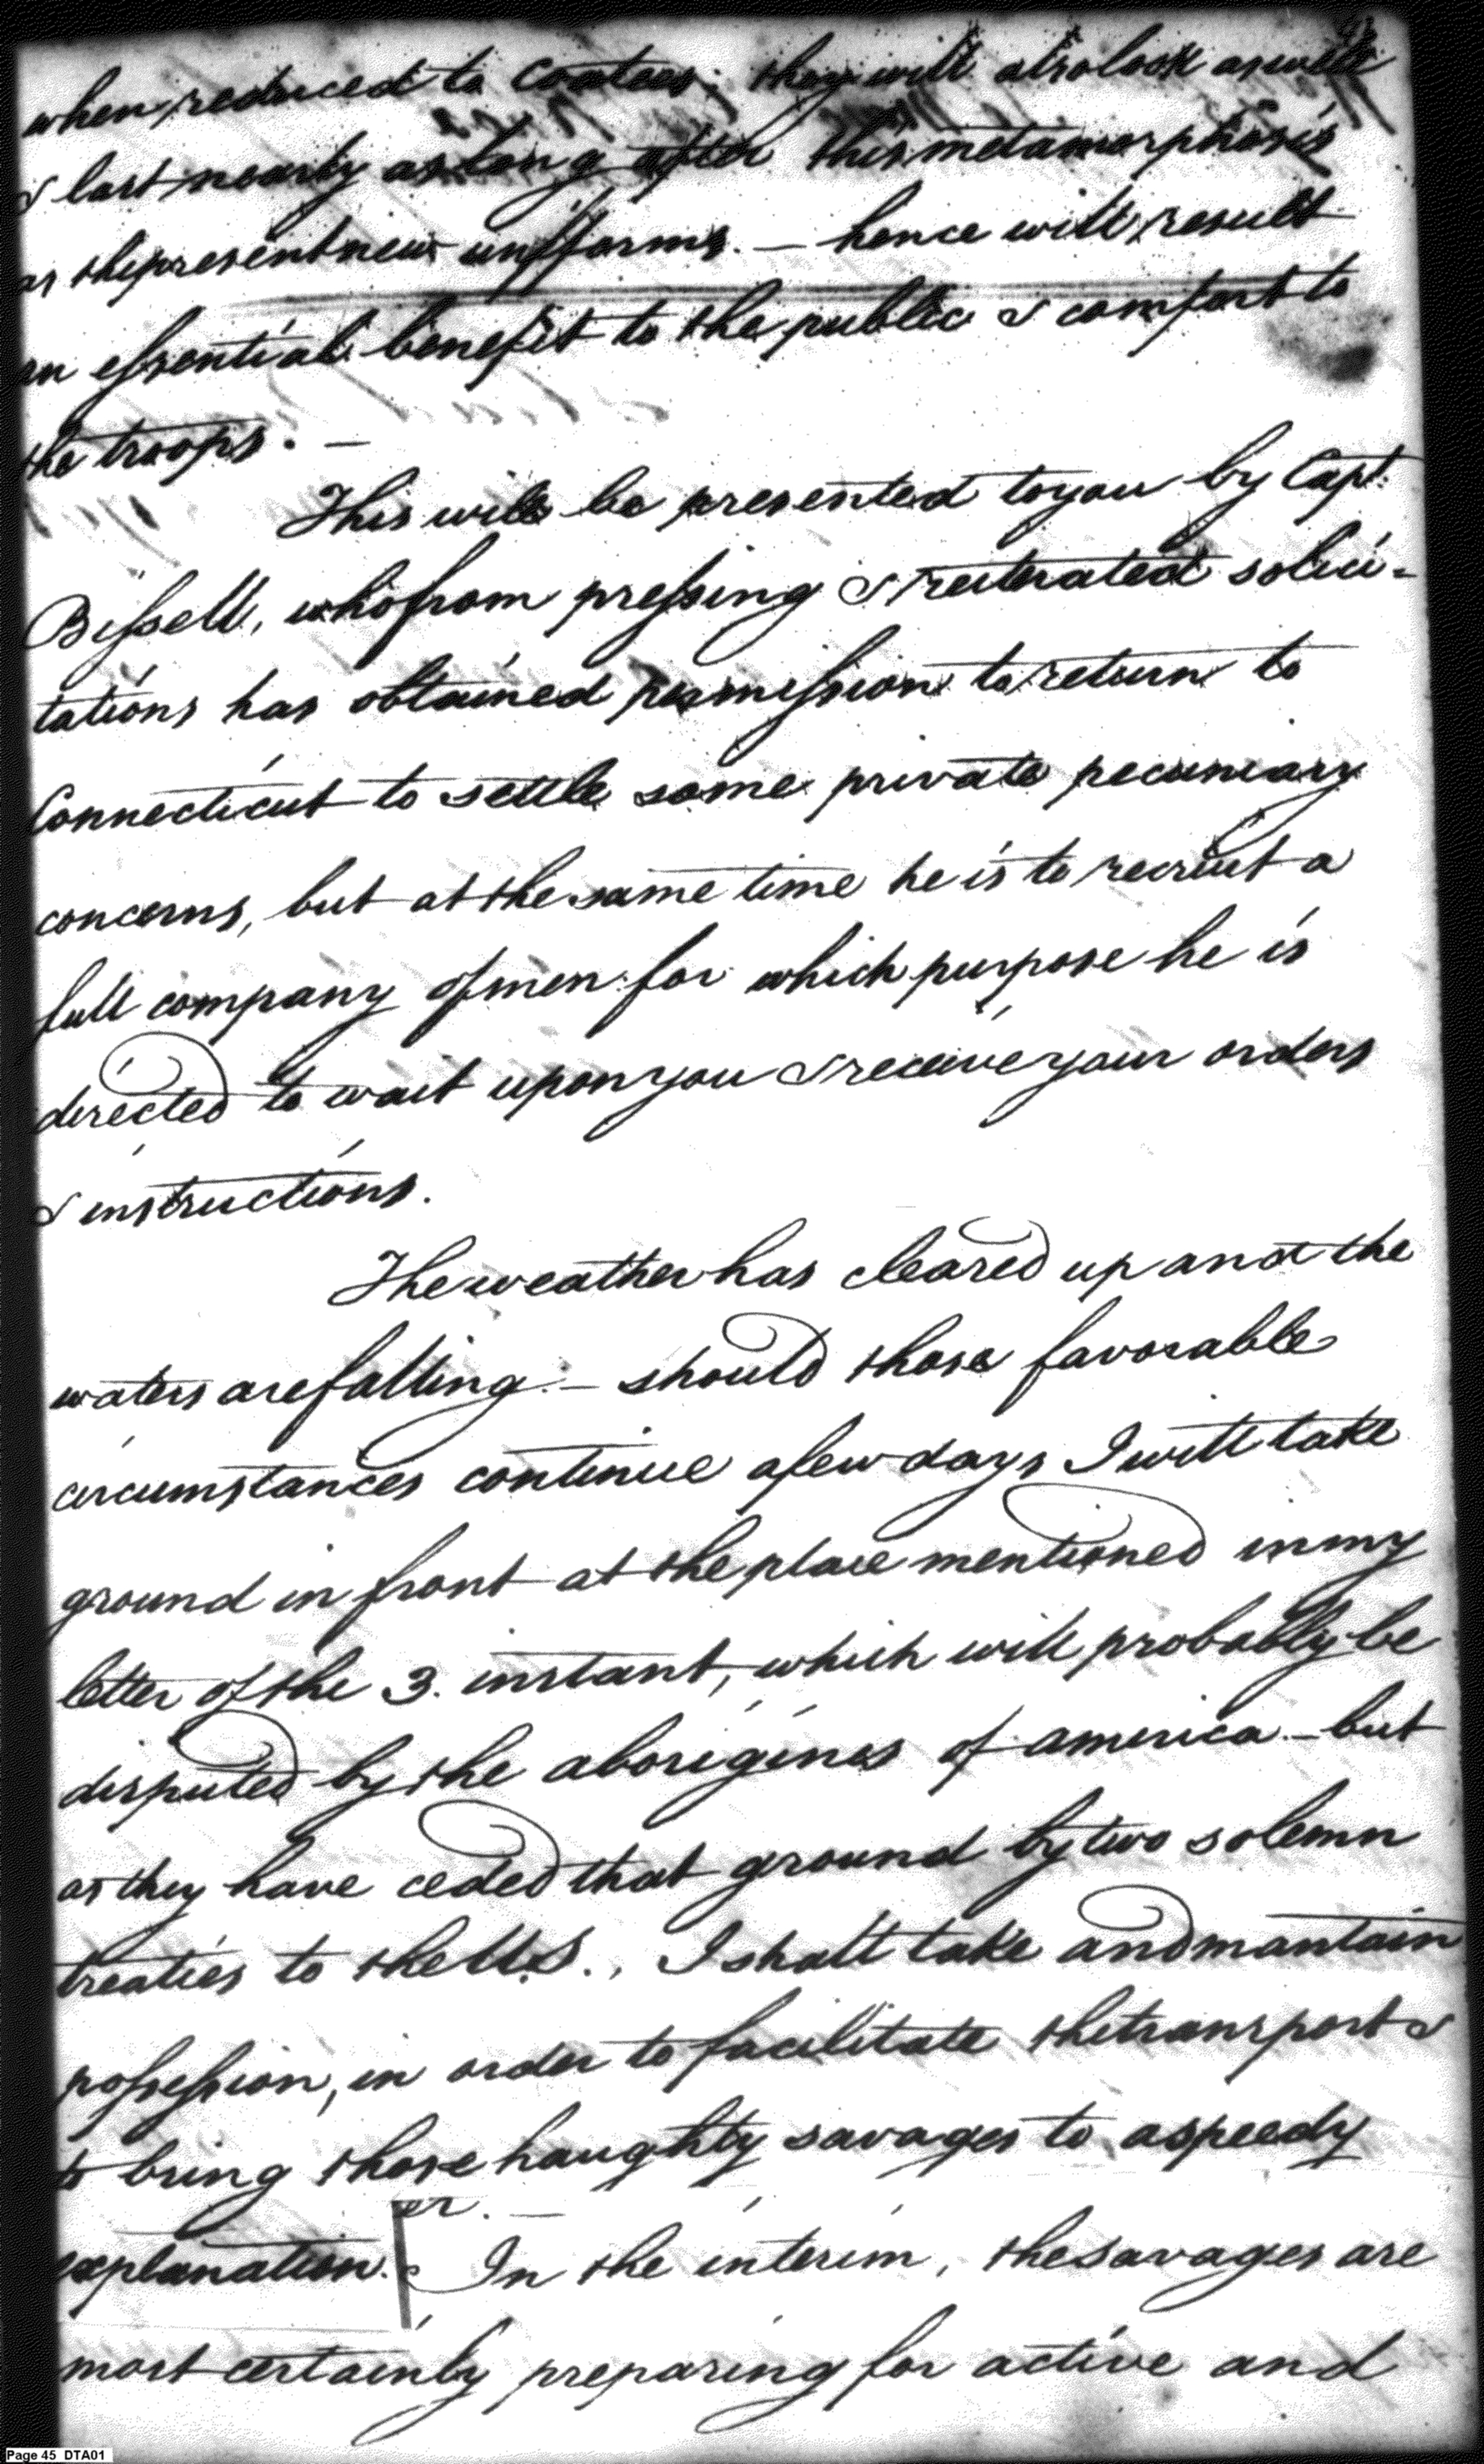 when reduced to Coatees. they will also look as well
& last nearly as long after this metamorphosis
as the present new uniforms. — hence will result
an essential benefit to the public & comfort to
the troops. —
This will be presented to you by Capt.
Bissell, who from pressing & reiterated solici-
tations has obtained permission to return to
Connecticut to settle some private pecuniary
concerns, but at the same time he is to recruit a
full company of men for which purpose he is
directed to wait upon you & receive your orders
& instructions.
The weather has cleared up and the
waters are falling. — should those favorable
circumstances continue a few days I will take
ground in front at the place mentioned in my
letter of the 3. instant, which will probably be
disputed by the aborigines of america — but
as they have ceded that ground by two solemn
treaties to the U.S., I shall take and mantain
possession, in order to facilitate the transport &
to bring those haughty savages to a speedy
explanation. In the interim, the savages are
most certainly preparing for active and
Page 45 DTA01